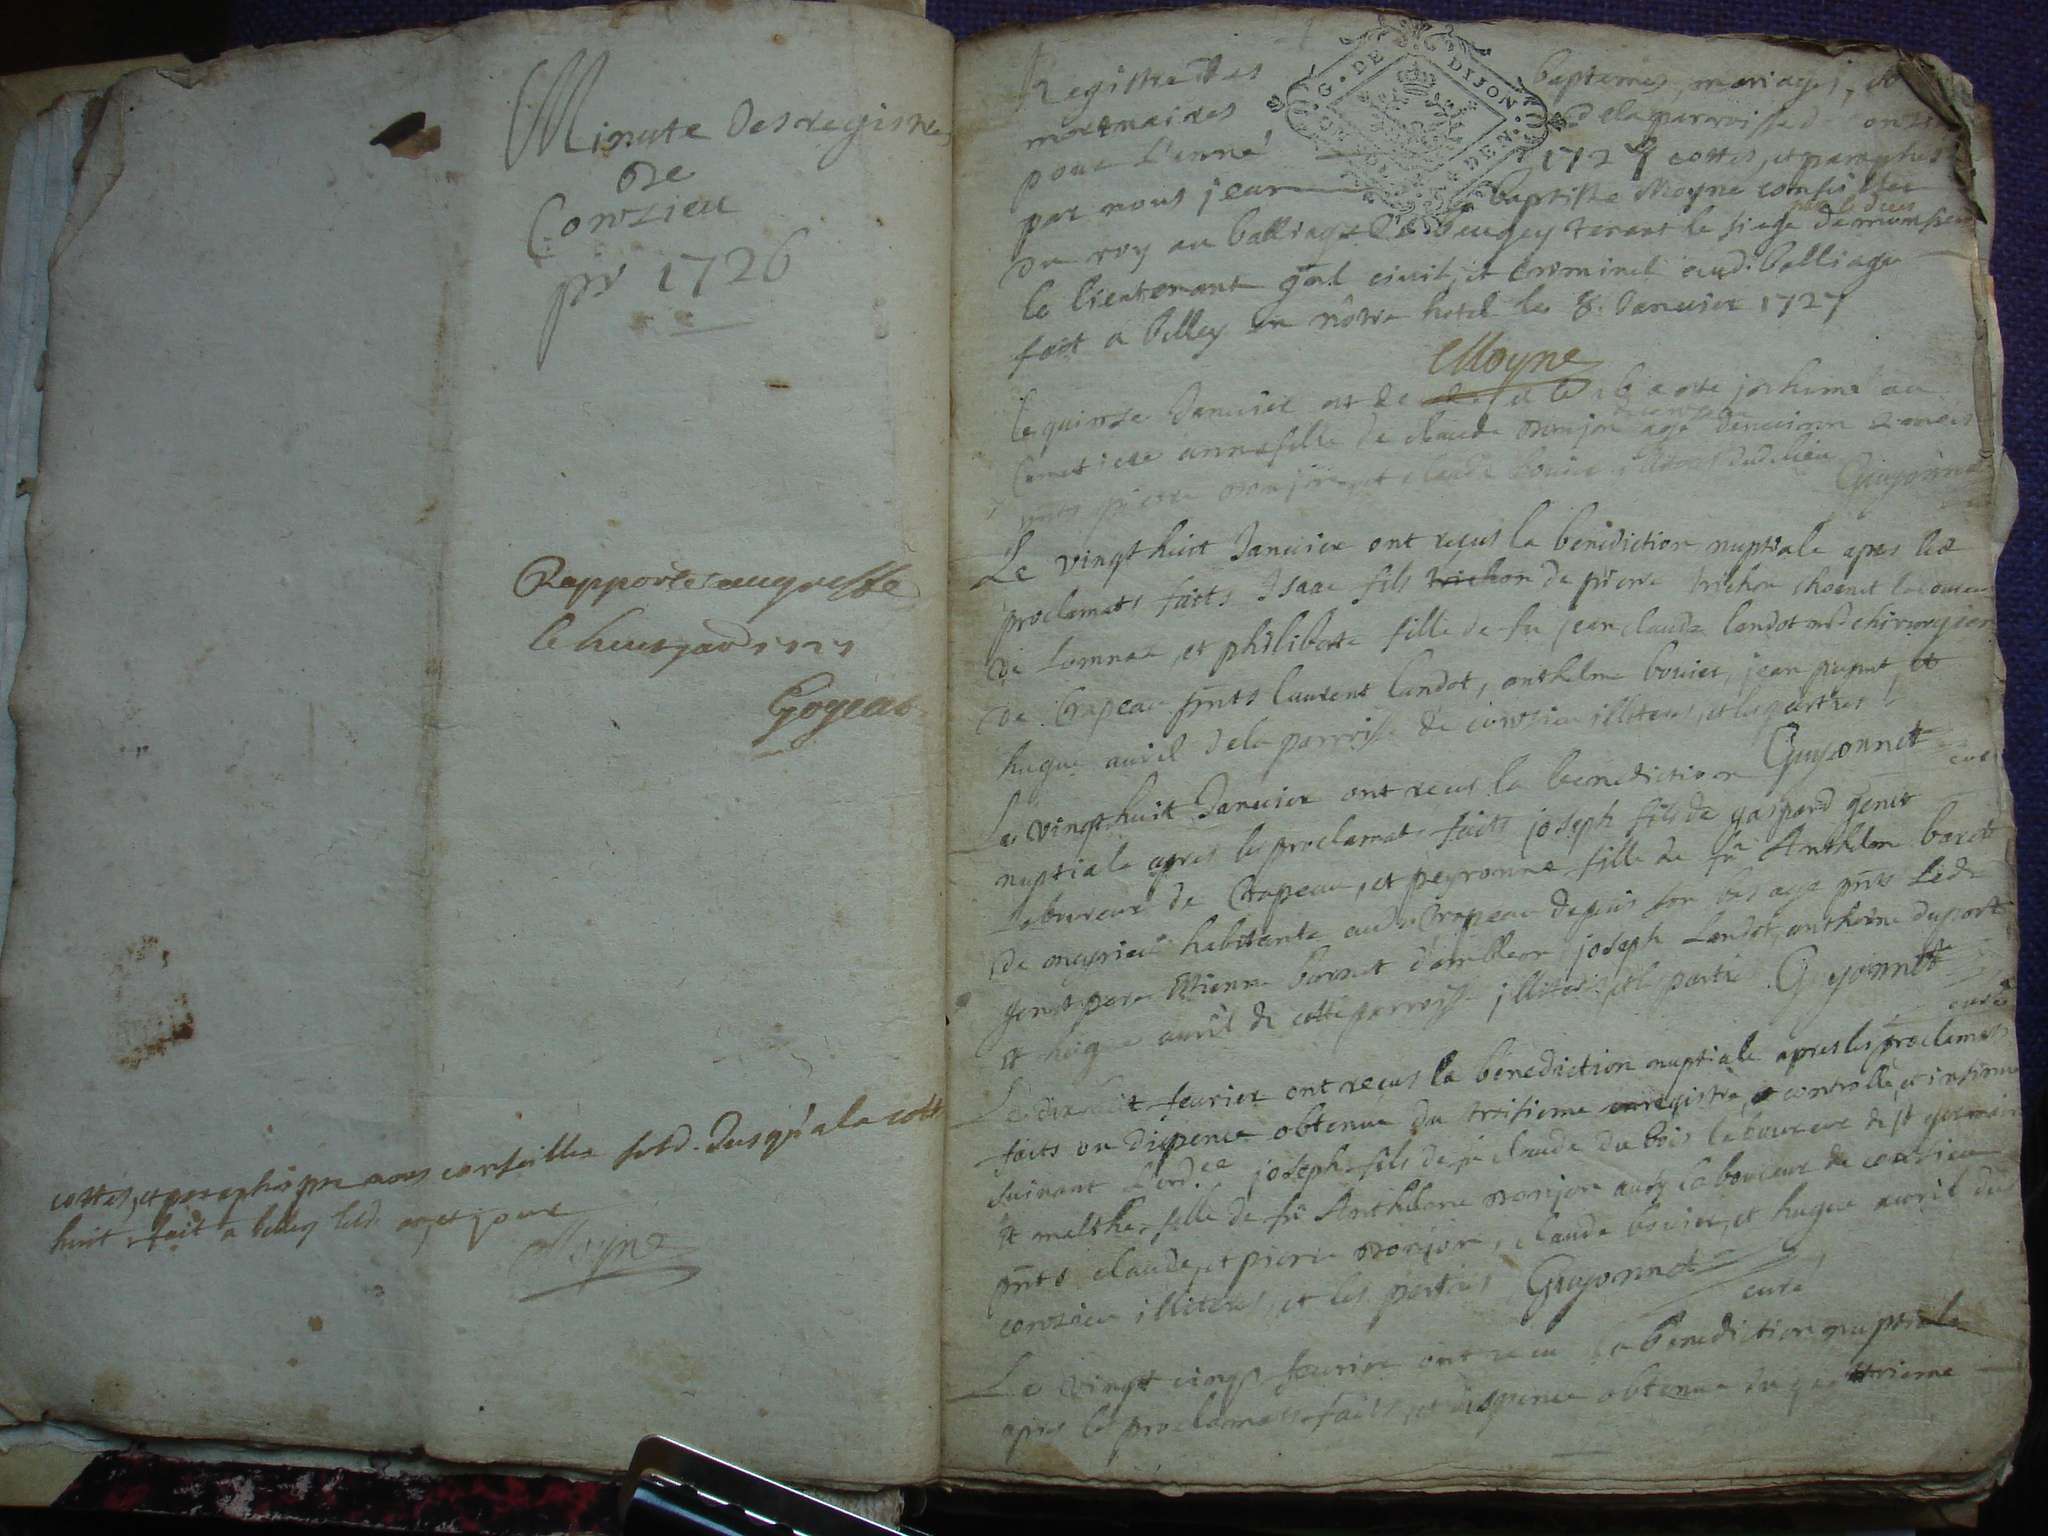 Minute des registres
de
Conzieu
pr 1726
Rapporte au greffe
le huit
Goyear
cottes, et paraphes par nous conseiller susd. Jusqu'a la cotte
huit fait a belley led. jour
Moyne
G. DE DIJON
Registre des baptemes, mariages, et
mortuaires de la parroisse d
pour l'année 1727 cottes, et paraphes
par nous jean baptiste Moyne conseiller
du roy au balliage de beugey tenant le siege de monsieur
le lieutenant gnal civil, et criminel aud. balliage
fait a belley en nôtre hotel le 8. Janvier 1727
Moyne
le quinze Janvier a este inhumé au
Cimetiere anne fille de claude monjon agé d'environ 2 mois
pnts pierre monjon, et claude bovier illiteres dud. lieu
Guyonnet
Le vingt huit Janvier ont reçus la benediction nuptiale apres les
proclamats faits Isaac fils trichon de pierre trichon
de Lomnaz, et philiberte fille de fu jean claude landot md chirurgien
de Crapeau pnts laurent landot, anthelme bovier, jean et
hugue avril de la parroisse de conzieu illiteres, et les parties
Guyonnet
curé
Le vingt huit Janvier ont recus la benediction
nuptiale apres les proclamats faits joseph fils de gaspard genet
laboureur de Crapeau, et peyronne fille de fu Anthelme
de habitante aud. Crapeau depuis son bas age pnts led.
genet pere Etienne d'ambleon, joseph Landot, anthelme duport
et hugue avril de cette parroisse illiteres, et les parties Guyonnet
curé
Le dix huit fevrier ont recus la benediction nuptiale apres les proclamats
faits ou dispence obtenue du troisieme enregistré, controllé, et insinué
suivant l'ord.ce joseph fils de fu claude du bois laboureur de st germain
et fille de fu Anthelme monjon aussy laboureur de conzieu
pnts claude, et pierre monjon, claude bovier, et hugue avril dud.
conzieu illiteres, et les parties Guyonnet
curé
Le vingt cinq fevrier ont recu la benediction nuptiale
apres les proclamats faits, et dispence obtenue du quattrieme